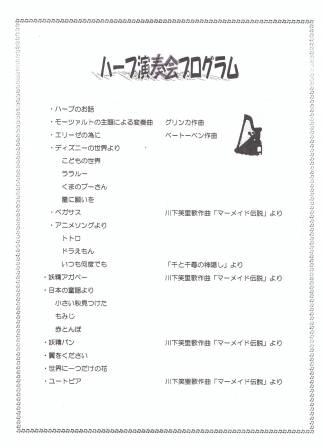 ハープ演奏会プログラム
・ハープのお話
・モーツァルトの主題による変奏曲　グリンカ作曲
・エリーゼの為に　ベートーベン作曲
・ディズニーの世界より
こどもの世界
ララルー
くまのプーさん
星に願いを
・ペガサス　川下英里歌作曲「マーメイド伝説」より
・アニメソングより
トトロ
ドラえもん
いつも何度でも　「千と千尋の神隠し」より
・妖精アガペー　川下英里歌作曲「マーメイド伝説」より
・日本の童謡より
小さい秋見つけた
もみじ
赤とんぼ
・妖精パン　川下英里歌作曲「マーメイド伝説」より
・翼をください
・世界に一つだけの花
・ユートピア　川下英里歌作曲「マーメイド伝説」より